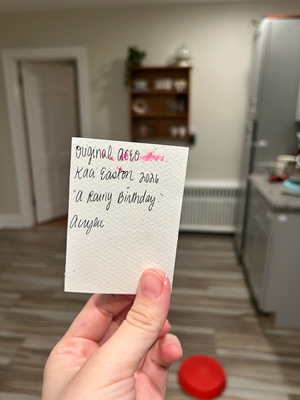 Original ACEO
Kaa Easton 2026
"A Rainy Birthday"
Acrylic